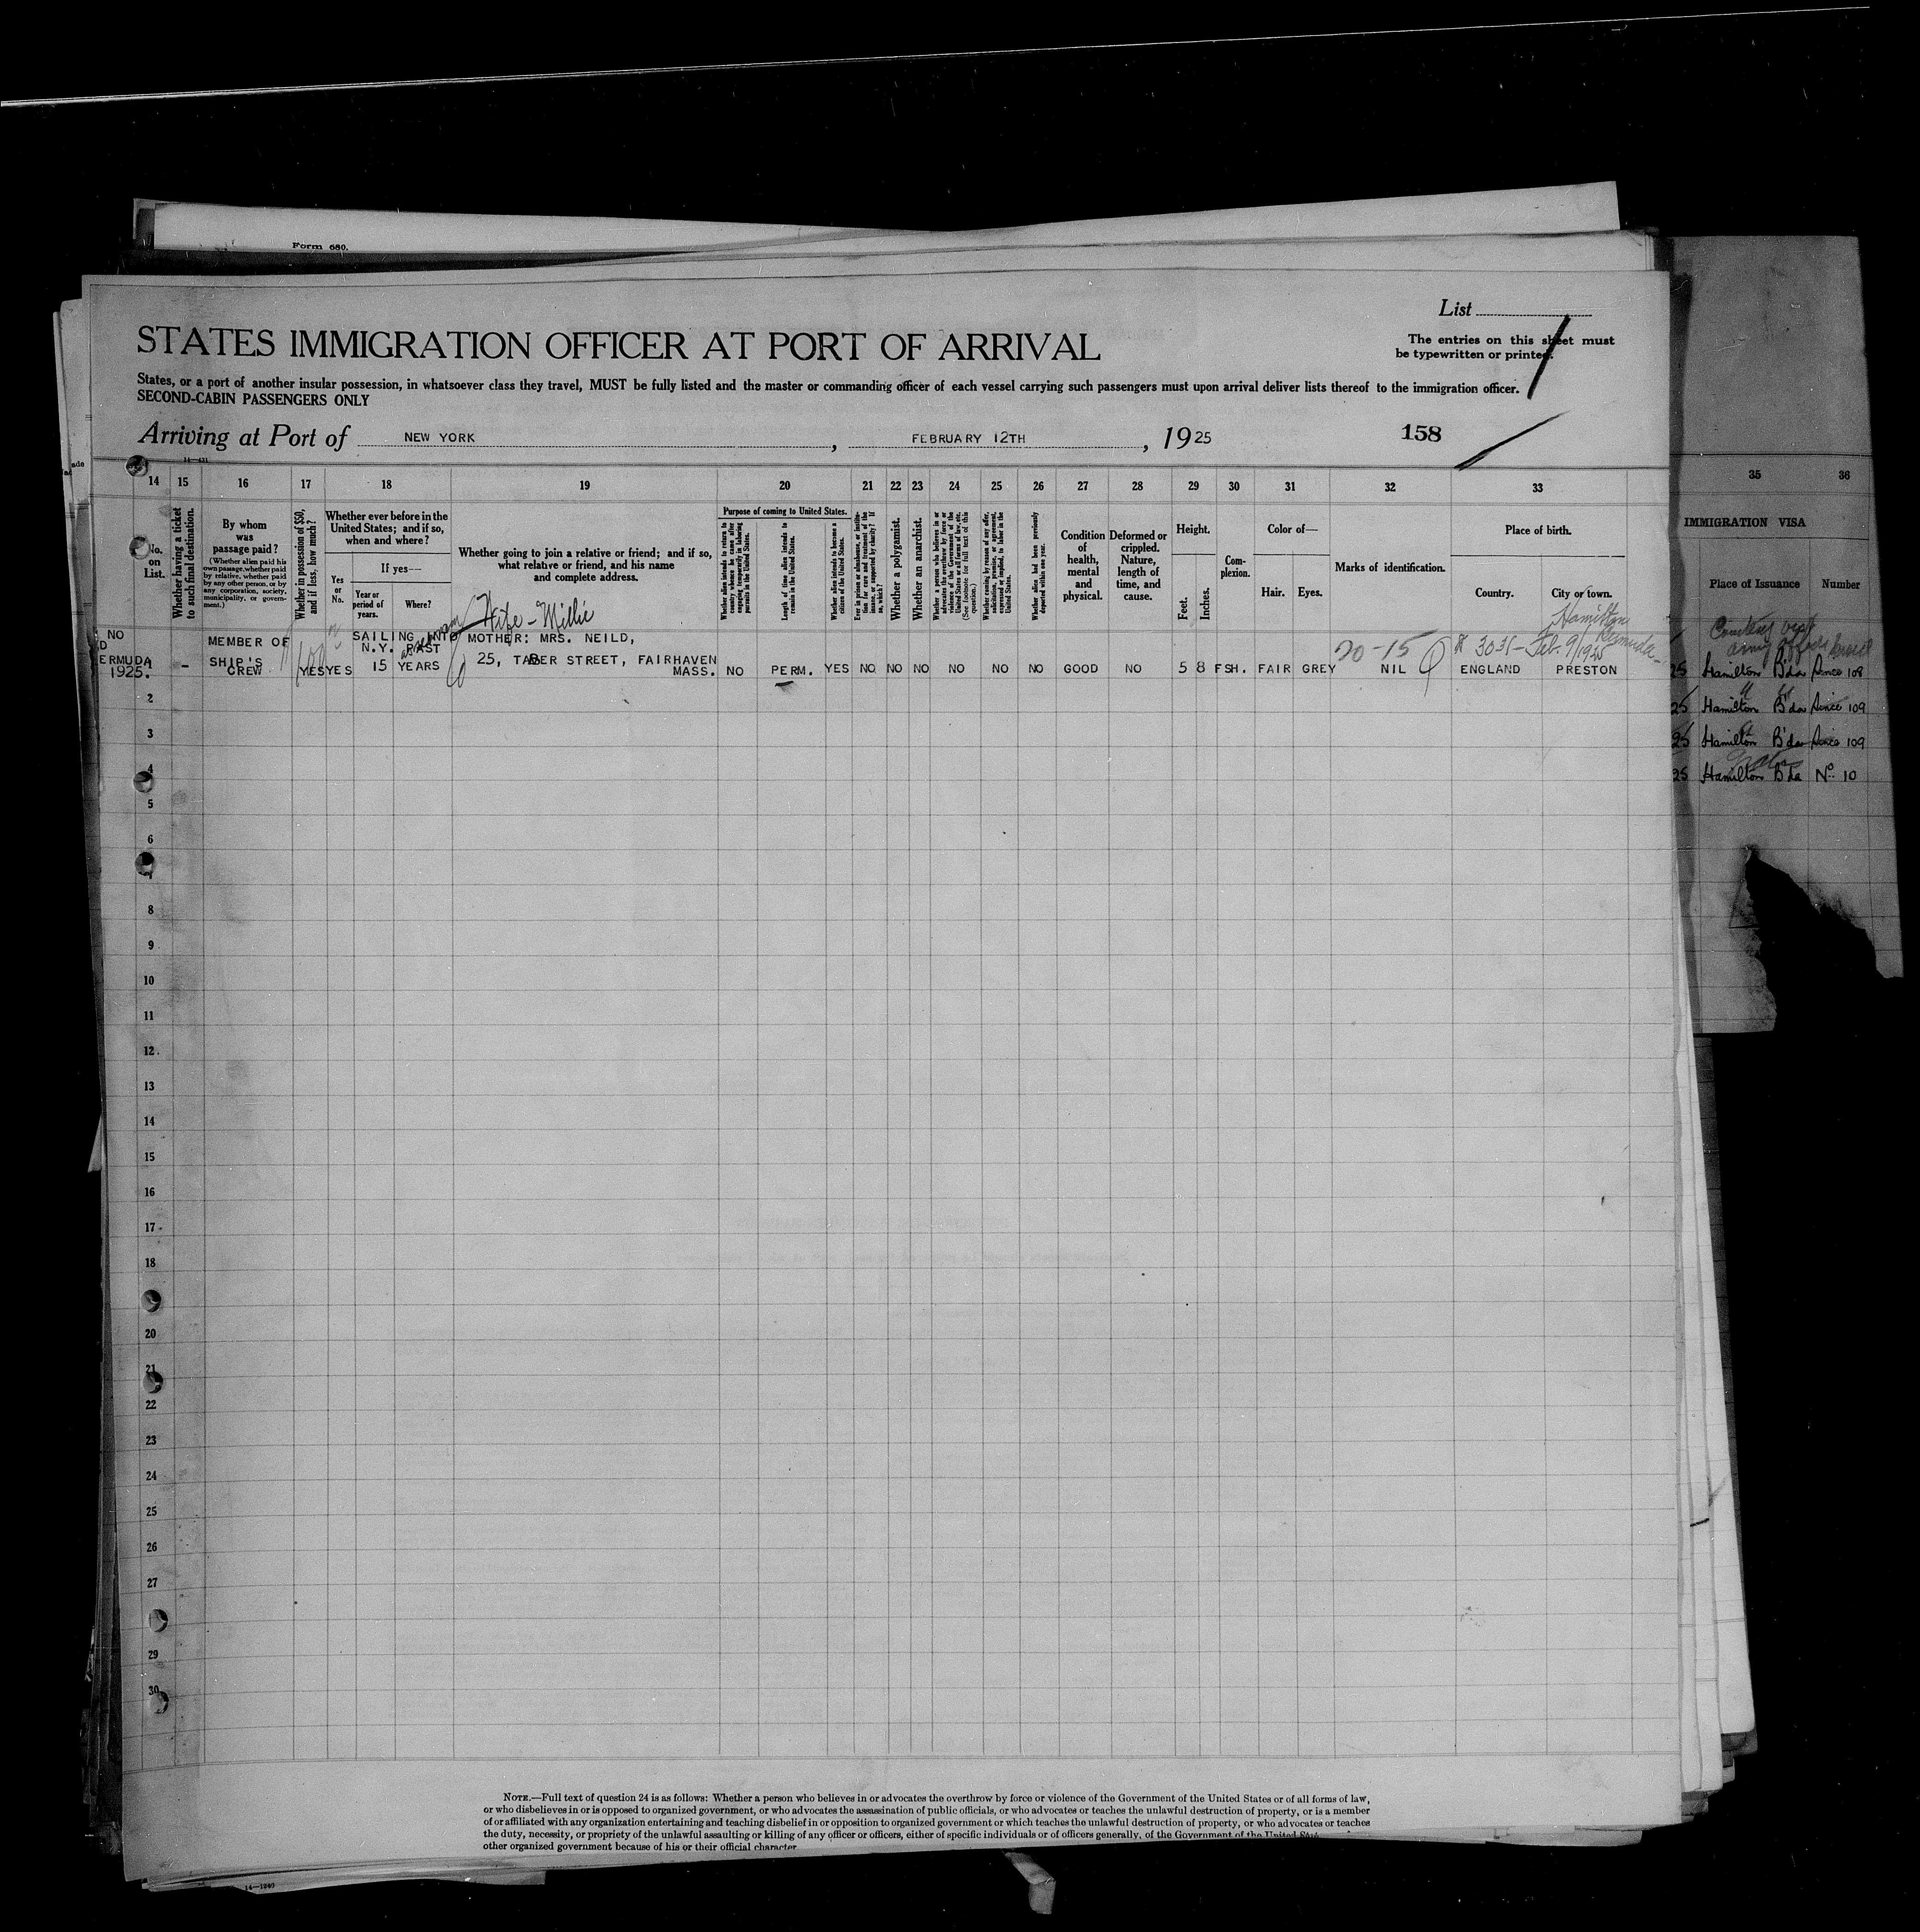 Form 680.
List
STATES IMMIGRATION OFFICER AT PORT OF ARRIVAL
The entries on this sheet must
be typewritten or printed.
States, or a port of another insular possession, in whatsoever class they travel, MUST be fully listed and the master or commanding officer of each vessel carrying such passengers must upon arrival deliver lists thereof to the immigration officer.
SECOND-CABIN PASSENGERS ONLY
Arriving at Port of NEW YORK , FEBRUARY 12TH , 1925
158
14 15 16 17 18 19 20 21 22 23 24 25 26 27 28 29 30 31 32 33
35 36
No. on List.
Whether having a ticket to such final destination.
By whom was passage paid?
(Whether alien paid his own passage, whether paid by relative, whether paid by any other person, or by any corporation, society, municipality, or government.)
Whether in possession of $50, and if less, how much?
Whether ever before in the United States; and if so, when and where?
Yes or No.
If yes—
Year or period of years.
Where?
Whether going to join a relative or friend; and if so, what relative or friend, and his name and complete address.
Purpose of coming to United States.
Whether alien intends to return to country whence he came after engaging temporarily in laboring pursuits in the United States.
Length of time alien intends to remain in the United States.
Whether alien intends to become a citizen of the United States.
Whether a polygamist.
Whether an anarchist.
Whether alien had been previously deported within one year.
Condition of health, mental and physical.
Deformed or crippled. Nature, length of time, and cause.
Height.
Feet.
Inches.
Complexion.
Color of—
Hair.
Eyes.
Marks of identification.
Place of birth.
Country.
City or town.
IMMIGRATION VISA
Place of Issuance
Number
Wife - Millie
Hamilton
Bermuda
20-15
3031 - Feb. 9/1925
NO
D
ERMUDA
1925.
-
MEMBER OF
SHIP'S
CREW
100
YES
YES
SAILING INTO
N.Y. PAST
15 YEARS
MOTHER: MRS. NEILD,
25, TABER STREET, FAIRHAVEN
MASS.
NO PERM. YES NO NO NO NO NO NO GOOD NO 5 8 FSH. FAIR GREY NIL ENGLAND PRESTON
25 Hamilton B'da Since 108
25 Hamilton B'da Since 109
25 Hamilton B'da Since 109
25 Hamilton B'da No. 10
2
3
4
5
6
7
8
9
10
11
12
13
14
15
16
17
18
20
21
22
23
24
25
26
27
29
30
NOTE.—Full text of question 24 is as follows: Whether a person who believes in or advocates the overthrow by force or violence of the Government of the United States or of all forms of law,
or who disbelieves in or is opposed to organized government, or who advocates the assassination of public officials, or who advocates or teaches the unlawful destruction of property, or is a member
of or affiliated with any organization entertaining and teaching disbelief in or opposition to organized government or which teaches the unlawful destruction of property, or who advocates or teaches
the duty, necessity, or propriety of the unlawful assaulting or killing of any officer or officers, either of specific individuals or of officers generally, of the Government of the United
other organized government because of his or their official character
14—1240